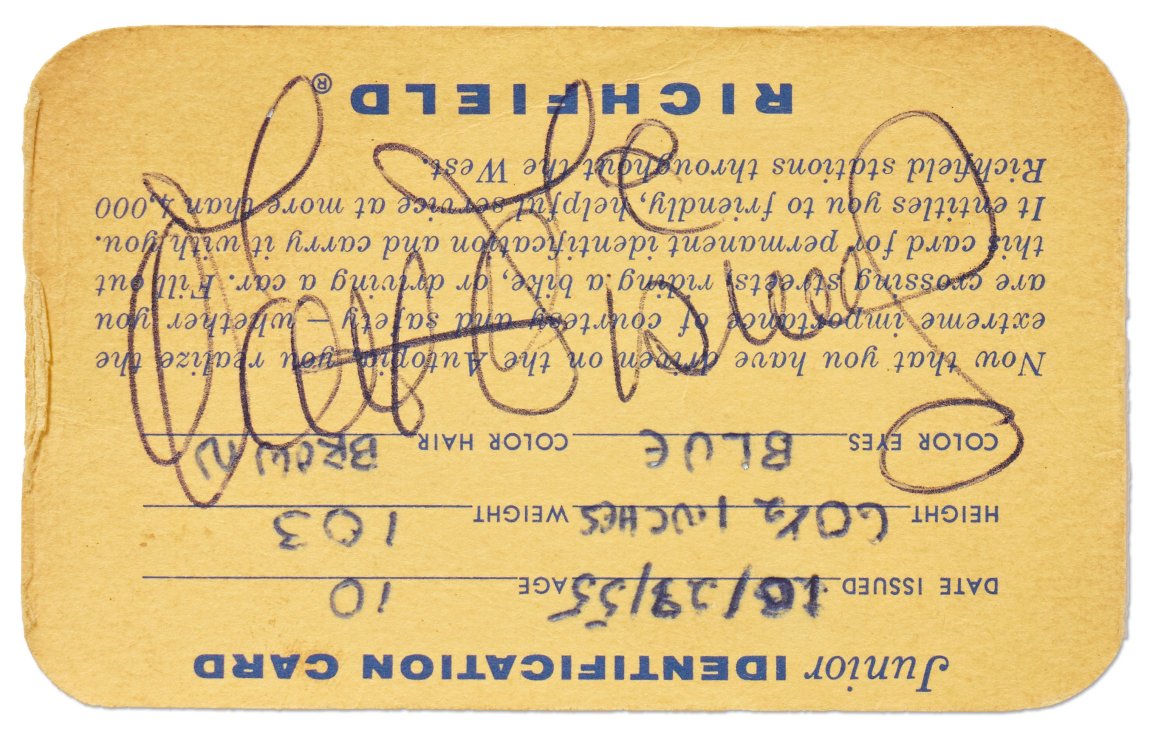 Junior IDENTIFICATION CARD
DATE ISSUED 10/23/55 AGE 10
HEIGHT 60½ INCHES WEIGHT 103
COLOR EYES BLUE COLOR HAIR BROWN
Now that you have driven on the Autopia, you realize the
extreme importance of courtesy and safety — whether you
are crossing streets, riding a bike, or driving a car. Fill out
this card for permanent identification and carry it with you.
It entitles you to friendly, helpful service at more than 4,000
Richfield stations throughout the West.
RICHFIELD®
Walt Disney